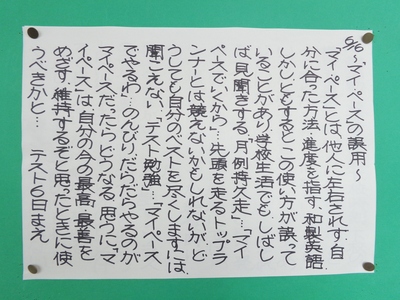 6/6〜「マイ・ペース」の誤用〜
「マイ・ペース」とは、他人に左右されず、自
分に合った方法・進度を指す、和製英語。
しかし、ともすると、この使い方が誤って
いることがあり、学校生活でも、しばし
ば見聞きする。月例持久走、「マイ
ペースでいくから」、先頭を走るトップラ
ンナーとは競えないかもしれないが、ど
うしても自分の、ベストを尽くしますには、
聞こえない。「テスト勉強…、「マイペース
でやるわ…のんびり、だらだらやるのが
マイペースだったらどうなる。思うに、「マ
イペース」は、自分の今の最高・最善を
めざす、維持するぞと思ったときに使
うべきかと…　テスト6日まえ